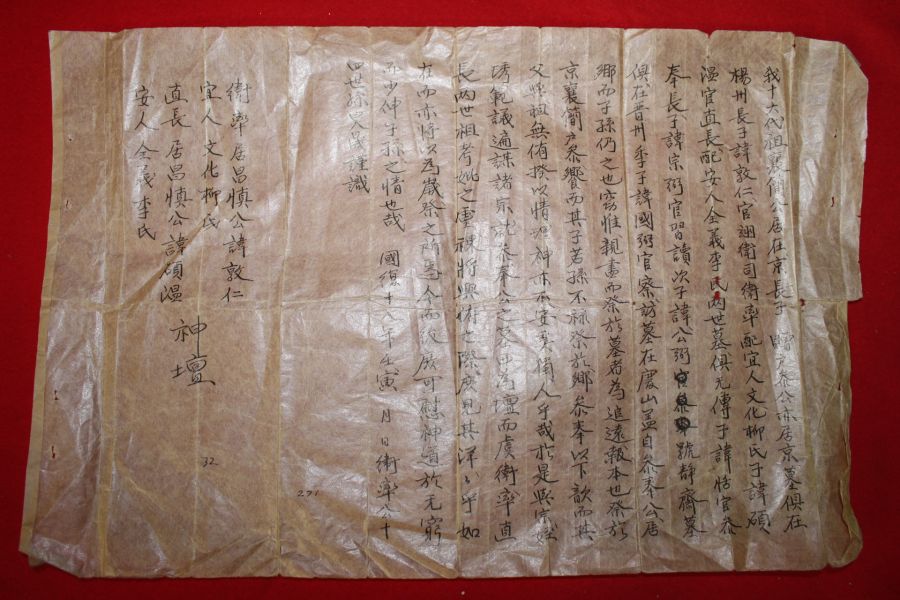 我十六代祖襄簡公居在京長子 贈戶參公亦居京墓俱在
楊州長子諱敦仁官翊衛司衛率配宜人文化柳氏子諱碩
溫官直長配安人全義李氏兩世墓俱无傳子諱恬官參
奉長子諱宗弼官習讀次子諱公弼官參奉號靜齋墓
俱在晋州季子諱國弼官察訪墓在慶山盖自參奉公居
鄉而子孫仍之也窃惟親盡而祭於墓者為追遠報本也祭於
京襄簡戶參饗而其子若孫不祢祭於鄉參奉以下歆而其
父與祖無侑揆以情理神亦不安矣侑人乎哉於是與宗姪
琇範議遍諏諸宗就參奉公之墓傍為壇而虔衛率直
長兩世祖考妣之靈祼將興俯之際庶見其洋〻乎如
在而亦將以為歲祭之所世〻令而或庶可慰神道於无窮
而少伸子孫之情也哉 國復十八年壬寅 月 日衛率公十
四世孫 謹識
衛率居昌愼公諱敦仁
宜人文化柳氏
直長居昌愼公諱碩溫
安人全義李氏
神壇
32
271